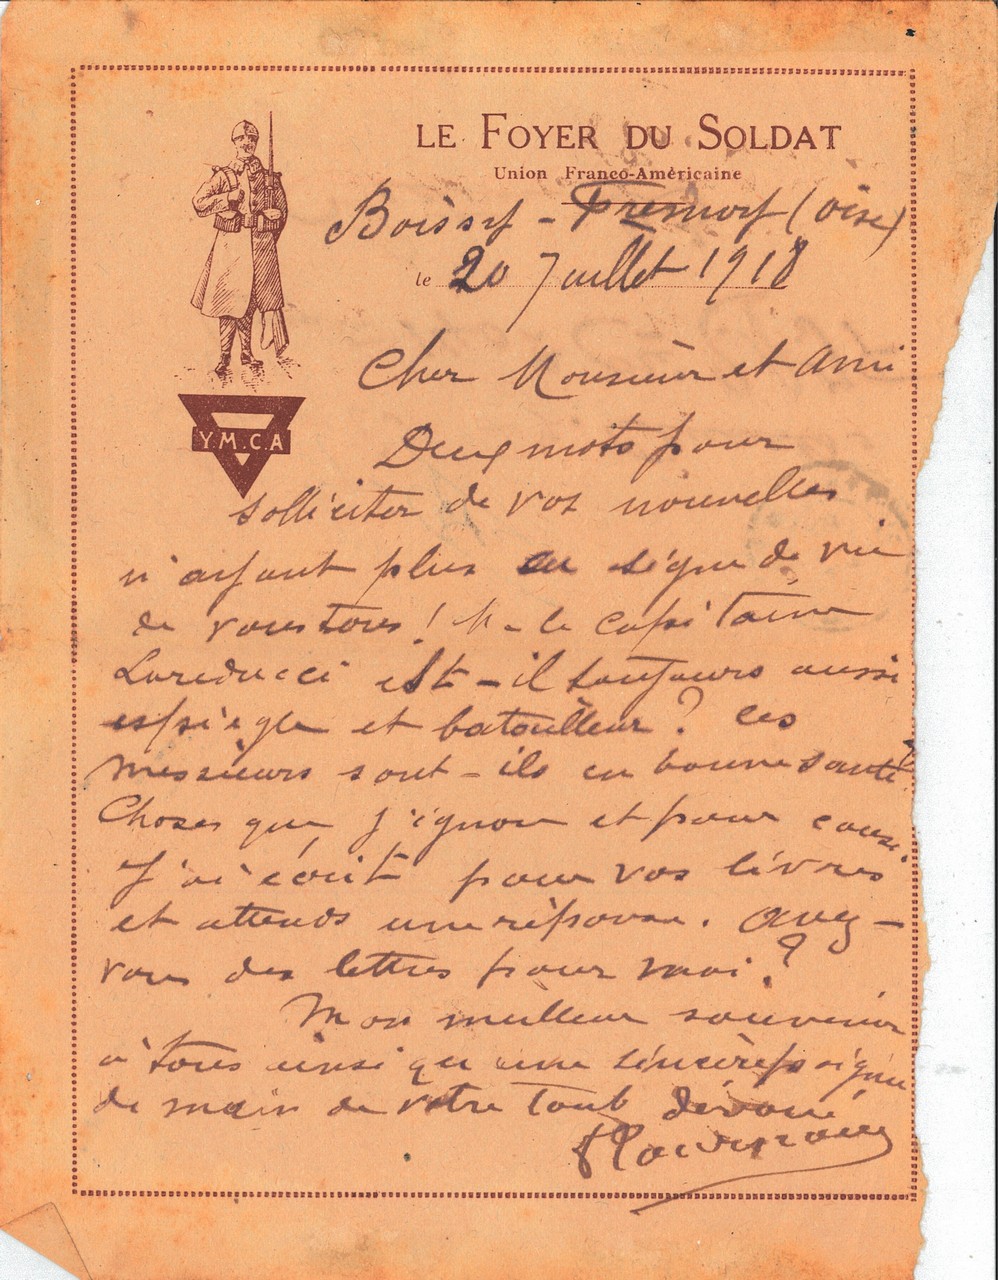 LE FOYER DU SOLDAT
Union Franco-Américaine
Boissy - Fresnoy (Oise)
le 20 Juillet 1918
Y.M.C.A
Cher Monsieur et Ami
Deux mots pour
solliciter de vos nouvelles
n'ayant plus eu signe de vie
de vous tous ! M. le Capitaine
est-il toujours aussi
espiègle et batailleur ? Ces
messieurs sont-ils en bonne santé ?
Choses que j'ignore et pour cause.
J'ai écrit pour vos livres
et attends une réponse. Avez-
vous des lettres pour moi ?
Mon meilleur souvenir
à tous ainsi qu'une sincère poignée
de main de votre tout dévoué